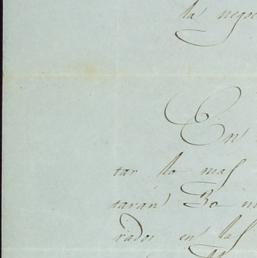 la nego
En
tar lo mas
taran 30 m
rados en las